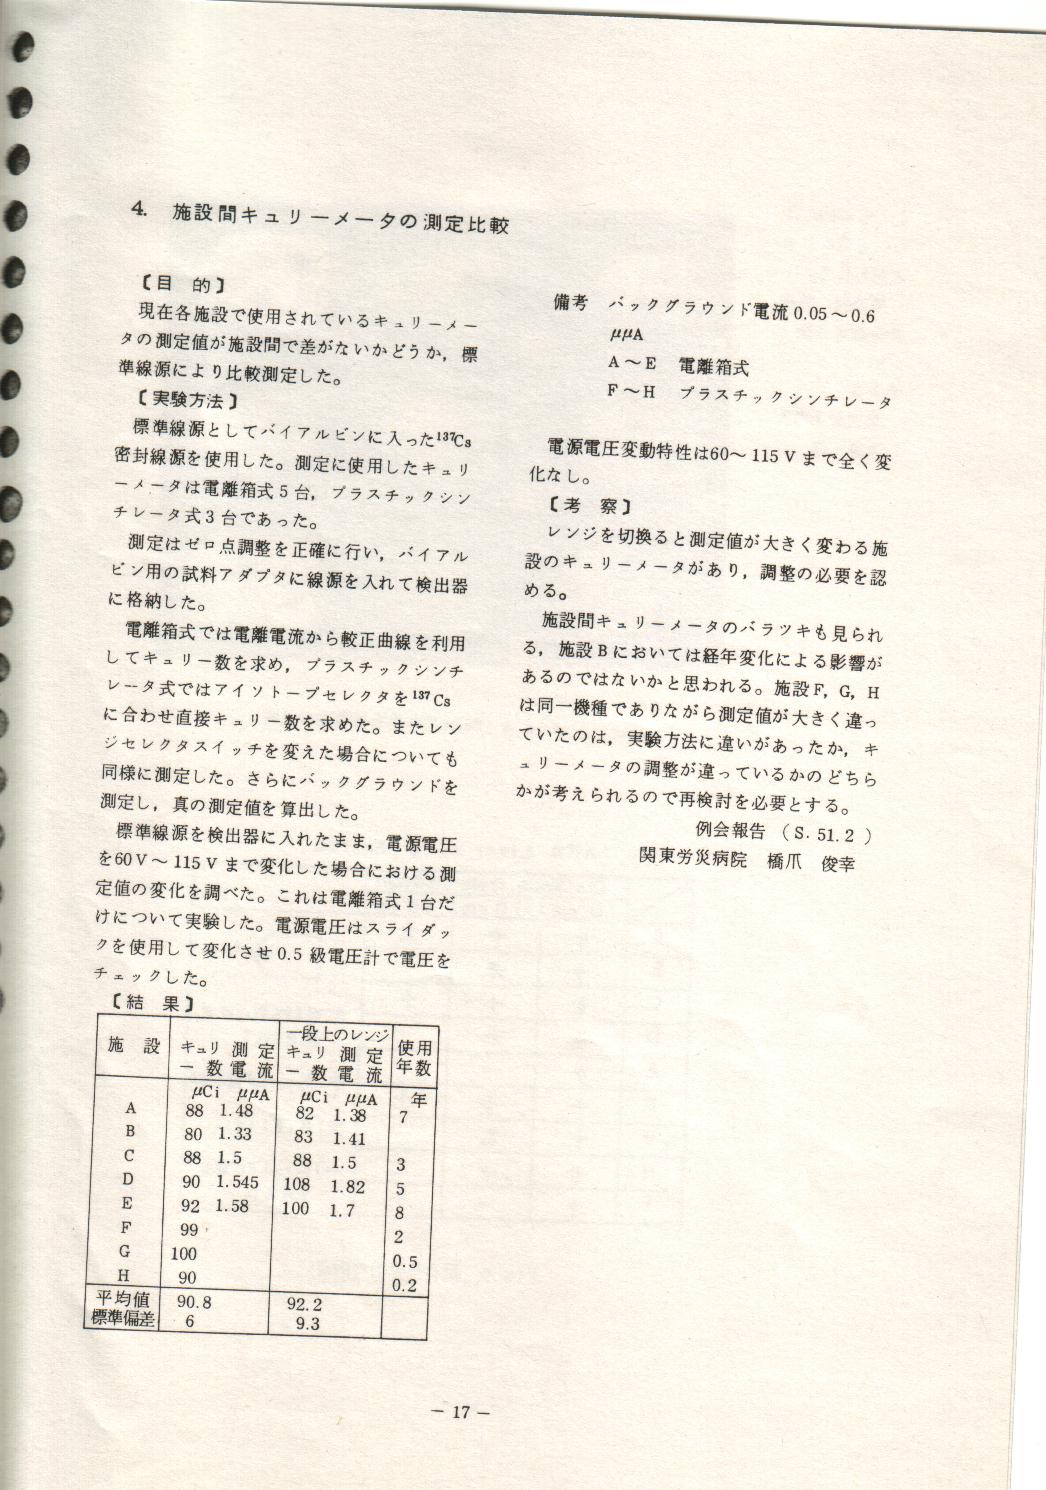 4. 施設間キュリーメータの測定比較
〔目 的〕
現在各施設で使用されているキュリーメー
タの測定値が施設間で差がないかどうか，標
準線源により比較測定した。
〔実験方法〕
標準線源としてバイアルビンに入った¹³⁷Cs
密封線源を使用した。測定に使用したキュリ
ーメータは電離箱式5台，プラスチックシン
チレータ式3台であった。
測定はゼロ点調整を正確に行い，バイアル
ビン用の試料アダプタに線源を入れて検出器
に格納した。
電離箱式では電離電流から較正曲線を利用
してキュリー数を求め，プラスチックシンチ
レータ式ではアイソトープセレクタを¹³⁷Cs
に合わせ直接キュリー数を求めた。またレン
ジセレクタスイッチを変えた場合についても
同様に測定した。さらにバックグラウンドを
測定し，真の測定値を算出した。
標準線源を検出器に入れたまま，電源電圧
を60V〜115Vまで変化した場合における測
定値の変化を調べた。これは電離箱式1台だ
けについて実験した。電源電圧はスライダッ
クを使用して変化させ0.5級電圧計で電圧を
チェックした。
〔結 果〕
一段上のレンジ
施 設 キュリ 測 定 キュリ 測 定 使用
ー 数 電 流 ー 数 電 流 年数
μCi μμA μCi μμA 年
A 88 1.48 82 1.38 7
B 80 1.33 83 1.41
C 88 1.5 88 1.5 3
D 90 1.545 108 1.82 5
E 92 1.58 100 1.7 8
F 99 2
G 100 0.5
H 90 0.2
平均値 90.8 92.2
標準偏差 6 9.3
備考 バックグラウンド電流0.05〜0.6
μμA
A〜E 電離箱式
F〜H プラスチックシンチレータ
電源電圧変動特性は60〜115Vまで全く変
化なし。
〔考 察〕
レンジを切換ると測定値が大きく変わる施
設のキュリーメータがあり，調整の必要を認
める。
施設間キュリーメータのバラツキも見られ
る，施設Bにおいては経年変化による影響が
あるのではないかと思われる。施設F，G，H
は同一機種でありながら測定値が大きく違っ
ていたのは，実験方法に違いがあったか，キ
ュリーメータの調整が違っているかのどちら
かが考えられるので再検討を必要とする。
例会報告 （S. 51.2 ）
関東労災病院 橋爪 俊幸
— 17 —